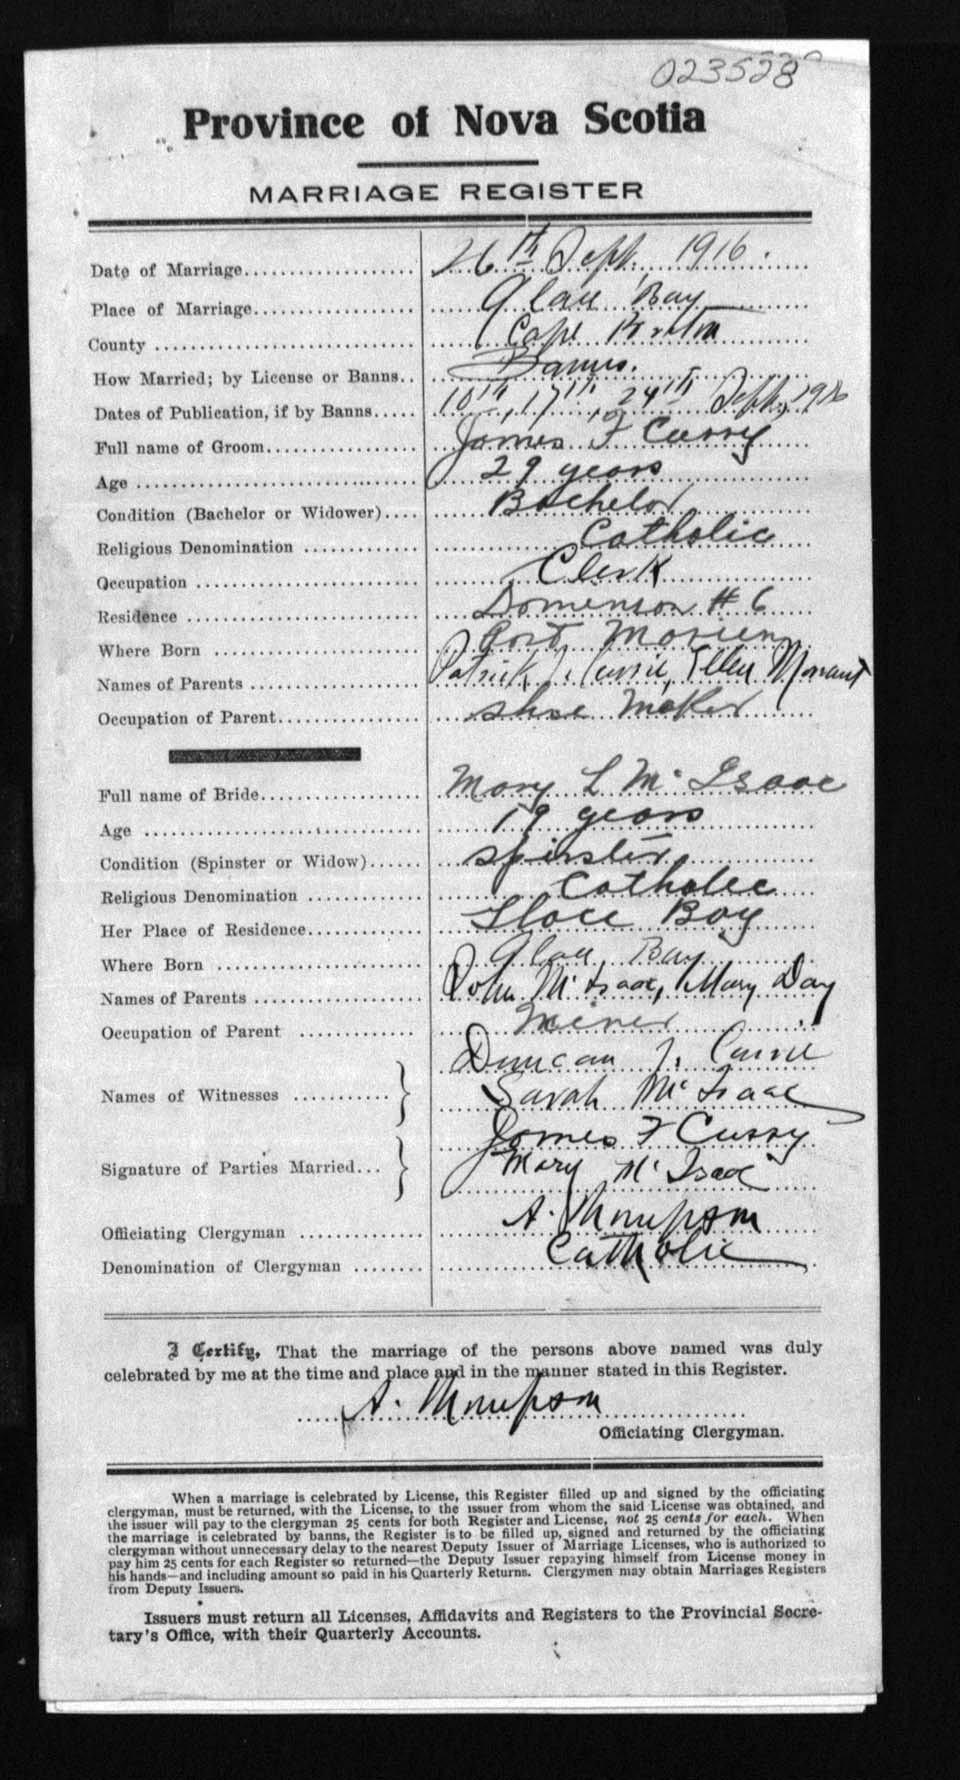 023528
Province of Nova Scotia
MARRIAGE REGISTER
Date of Marriage.................... 26th Sept. 1916.
Place of Marriage................... Glace Bay
County ............................. Cape Breton
How Married; by License or Banns.. Banns.
Dates of Publication, if by Banns..... 10th, 17th, 24th Sept, 1916
Full name of Groom.................. James F Curry
Age ................................ 29 years
Condition (Bachelor or Widower).... Bachelor
Religious Denomination ............. Catholic
Occupation ......................... Clerk
Residence .......................... Dominion # 6
Where Born ......................... Port Morien
Names of Parents ................... Patrick J. Currie, Ellen
Occupation of Parent................ Shoe Maker
Full name of Bride.................. Mary L Mc Isaac
Age ................................ 19 years
Condition (Spinster or Widow)...... Spinster
Religious Denomination ............. Catholic
Her Place of Residence............. Glace Bay
Where Born ......................... Glace Bay
Names of Parents ................... John Mc Isaac, Mary Day
Occupation of Parent .............. Miner
Names of Witnesses ........... } Duncan J. Currie
Sarah Mc Isaac
Signature of Parties Married... } James F Curry
Mary Mc Isaac
Officiating Clergyman .............. A. Thompson
Denomination of Clergyman ........ Catholic
I Certify, That the marriage of the persons above named was duly
celebrated by me at the time and place and in the manner stated in this Register.
A. Thompson
Officiating Clergyman.
When a marriage is celebrated by License, this Register filled up and signed by the officiating
clergyman, must be returned, with the License, to the issuer from whom the said License was obtained, and
the issuer will pay to the clergyman 25 cents for both Register and License, not 25 cents for each. When
the marriage is celebrated by banns, the Register is to be filled up, signed and returned by the officiating
clergyman without unnecessary delay to the nearest Deputy Issuer of Marriage Licenses, who is authorized to
pay him 25 cents for each Register so returned—the Deputy Issuer repaying himself from License money in
his hands—and including amount so paid in his Quarterly Returns. Clergymen may obtain Marriages Registers
from Deputy Issuers.
Issuers must return all Licenses, Affidavits and Registers to the Provincial Secre-
tary's Office, with their Quarterly Accounts.